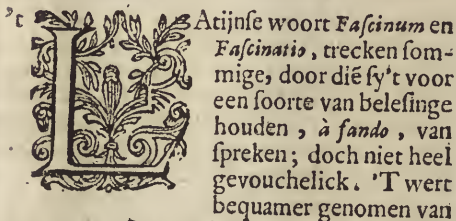 't LAtijnſe woort Faſcinum en
Faſcinatio, trecken ſom-
mige, door diẽ ſy't voor
een ſoorte van beleſinge
houden, à fando, van
ſpreken; doch niet heel
gevouchelick. 'T wert
bequamer genomen van